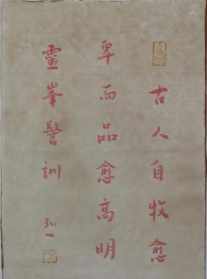 古人自牧愈
卑而品愈高明
靈峯警訓 弘一